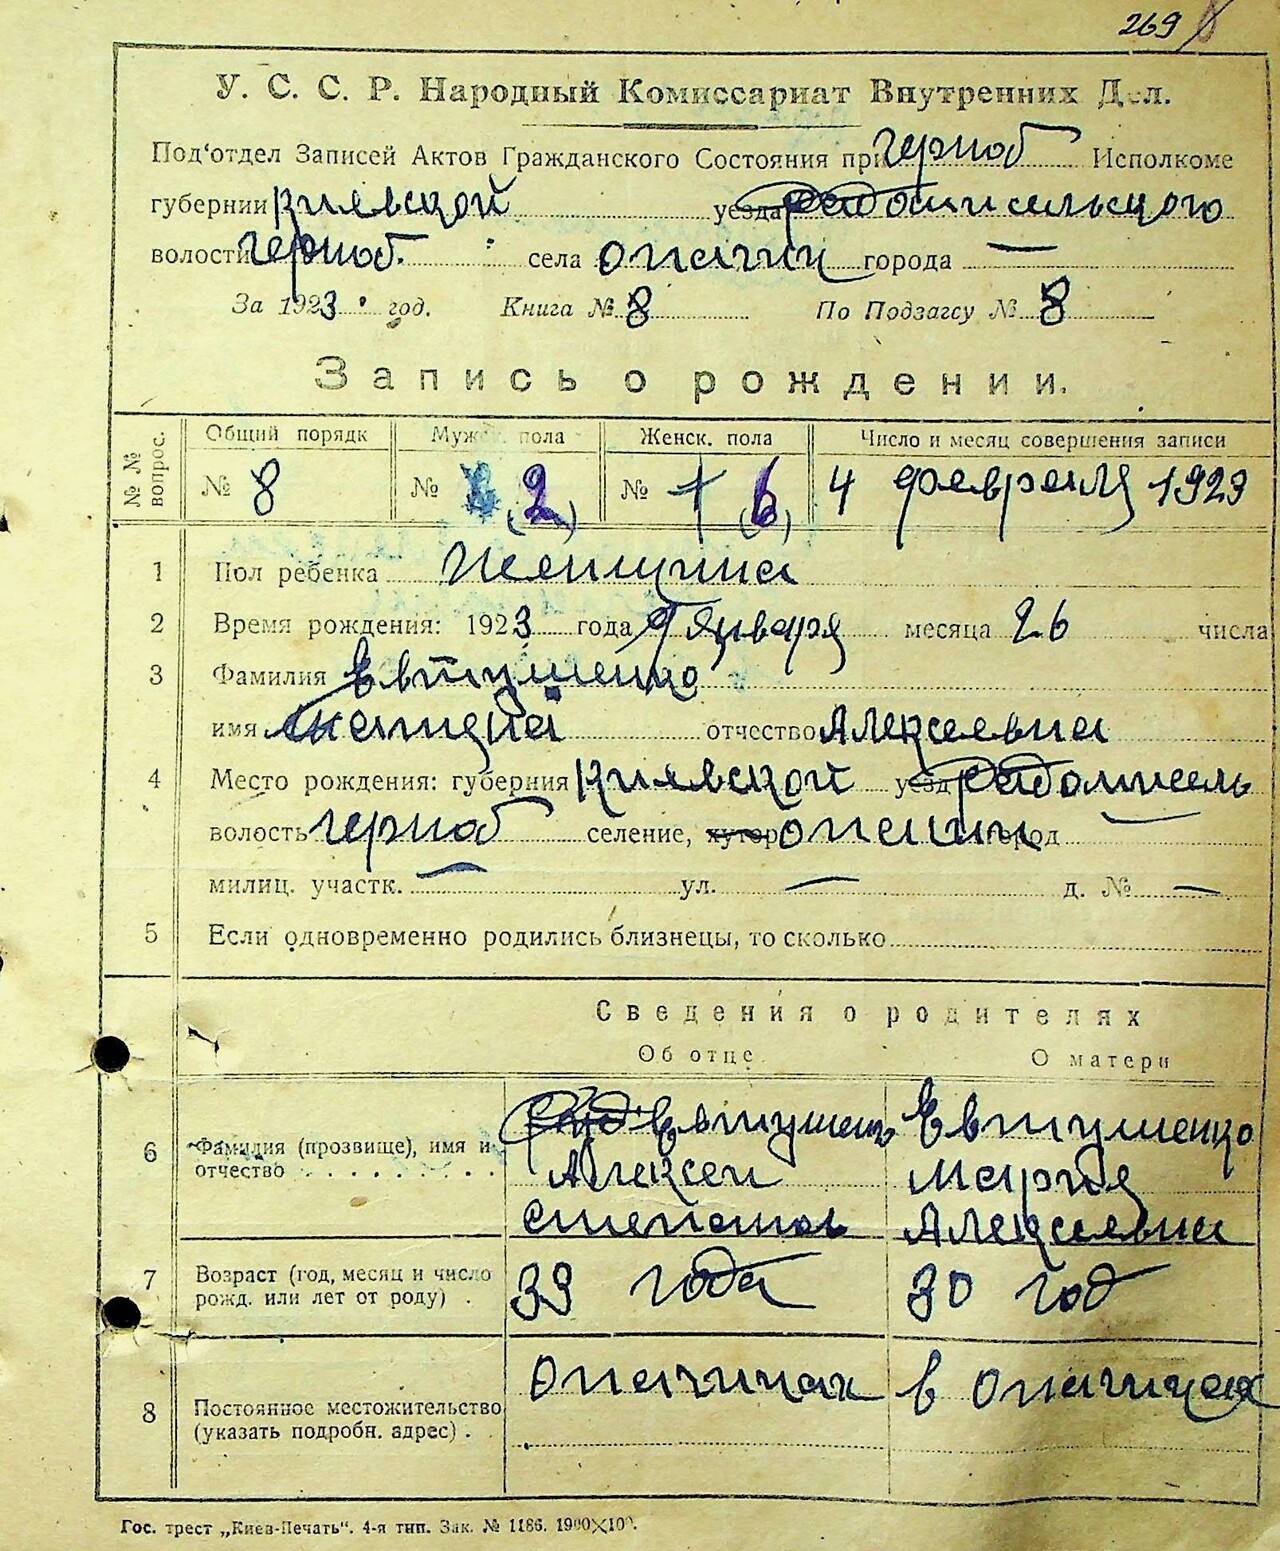 269
У. С. С. Р. Народный Комиссариат Внутренних Дел.
Под'отдел Записей Актов Гражданского Состояния при Черноб Исполкоме
губернии Киевской уезда Радомисельского
волости Черноб. села Опачич города —
За 1923 год. Книга № 8 По Подзагсу № 8
Запись о рождении.
№ № вопрос.
Общий порядк Мужс. пола Женск. пола Число и месяц совершения записи
№ 8 № (2) № 1 (6) 4 февраля 1923
1 Пол ребенка Женщина
2 Время рождения: 1923 года января месяца 26 числа
3 Фамилия Евтушенко
имя отчество Алексеевна
4 Место рождения: губерния Киевской уезд Радомисель
волость Черноб селение, хутор Опачичи город —
милиц. участк. — ул. — д. № —
5 Если одновременно родились близнецы, то сколько
Сведения о родителях
Об отце О матери
6 Фамилия (прозвище), имя и отчество Евтушенко Евтушенко
Алексей Мария
Степанов Алексеевна
7 Возраст (год, месяц и число рожд. или лет от роду) . 33 года 30 год
8 Постоянное местожительство (указать подробн. адрес) . Опачицах в Опачицах
Гос. трест „Киев-Печать“. 4-я тип. Зак. № 1186. 1900×100.